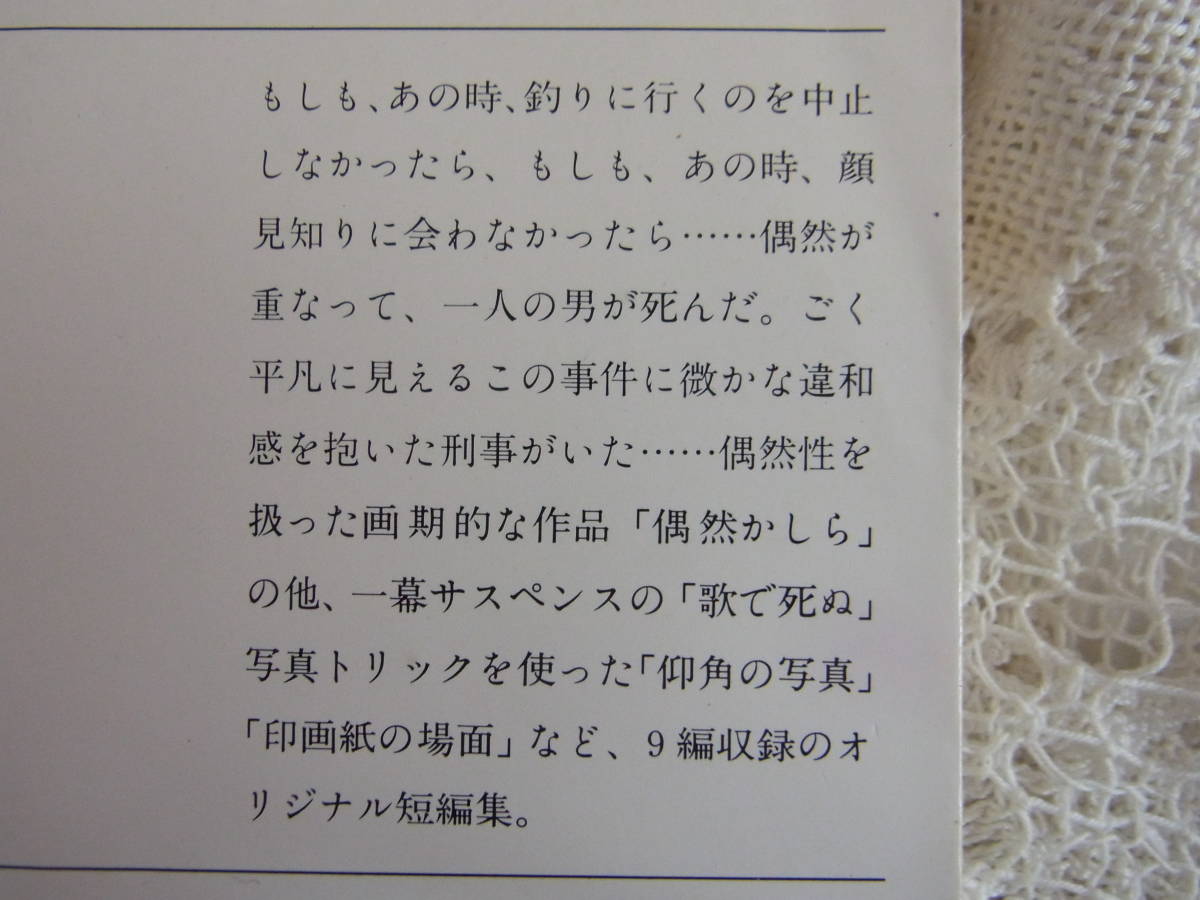 もしも、あの時、釣りに行くのを中止
しなかったら、もしも、あの時、顔
見知りに会わなかったら……偶然が
重なって、一人の男が死んだ。ごく
平凡に見えるこの事件に微かな違和
感を抱いた刑事がいた……偶然性を
扱った画期的な作品「偶然かしら」
の他、一幕サスペンスの「歌で死ぬ」
写真トリックを使った「仰角の写真」
「印画紙の場面」など、9編収録のオ
リジナル短編集。